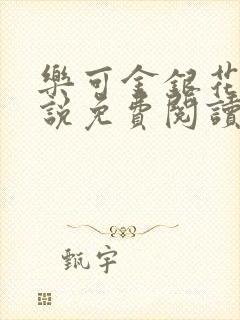 樂可金銀花
說免費閱讀
甄宇